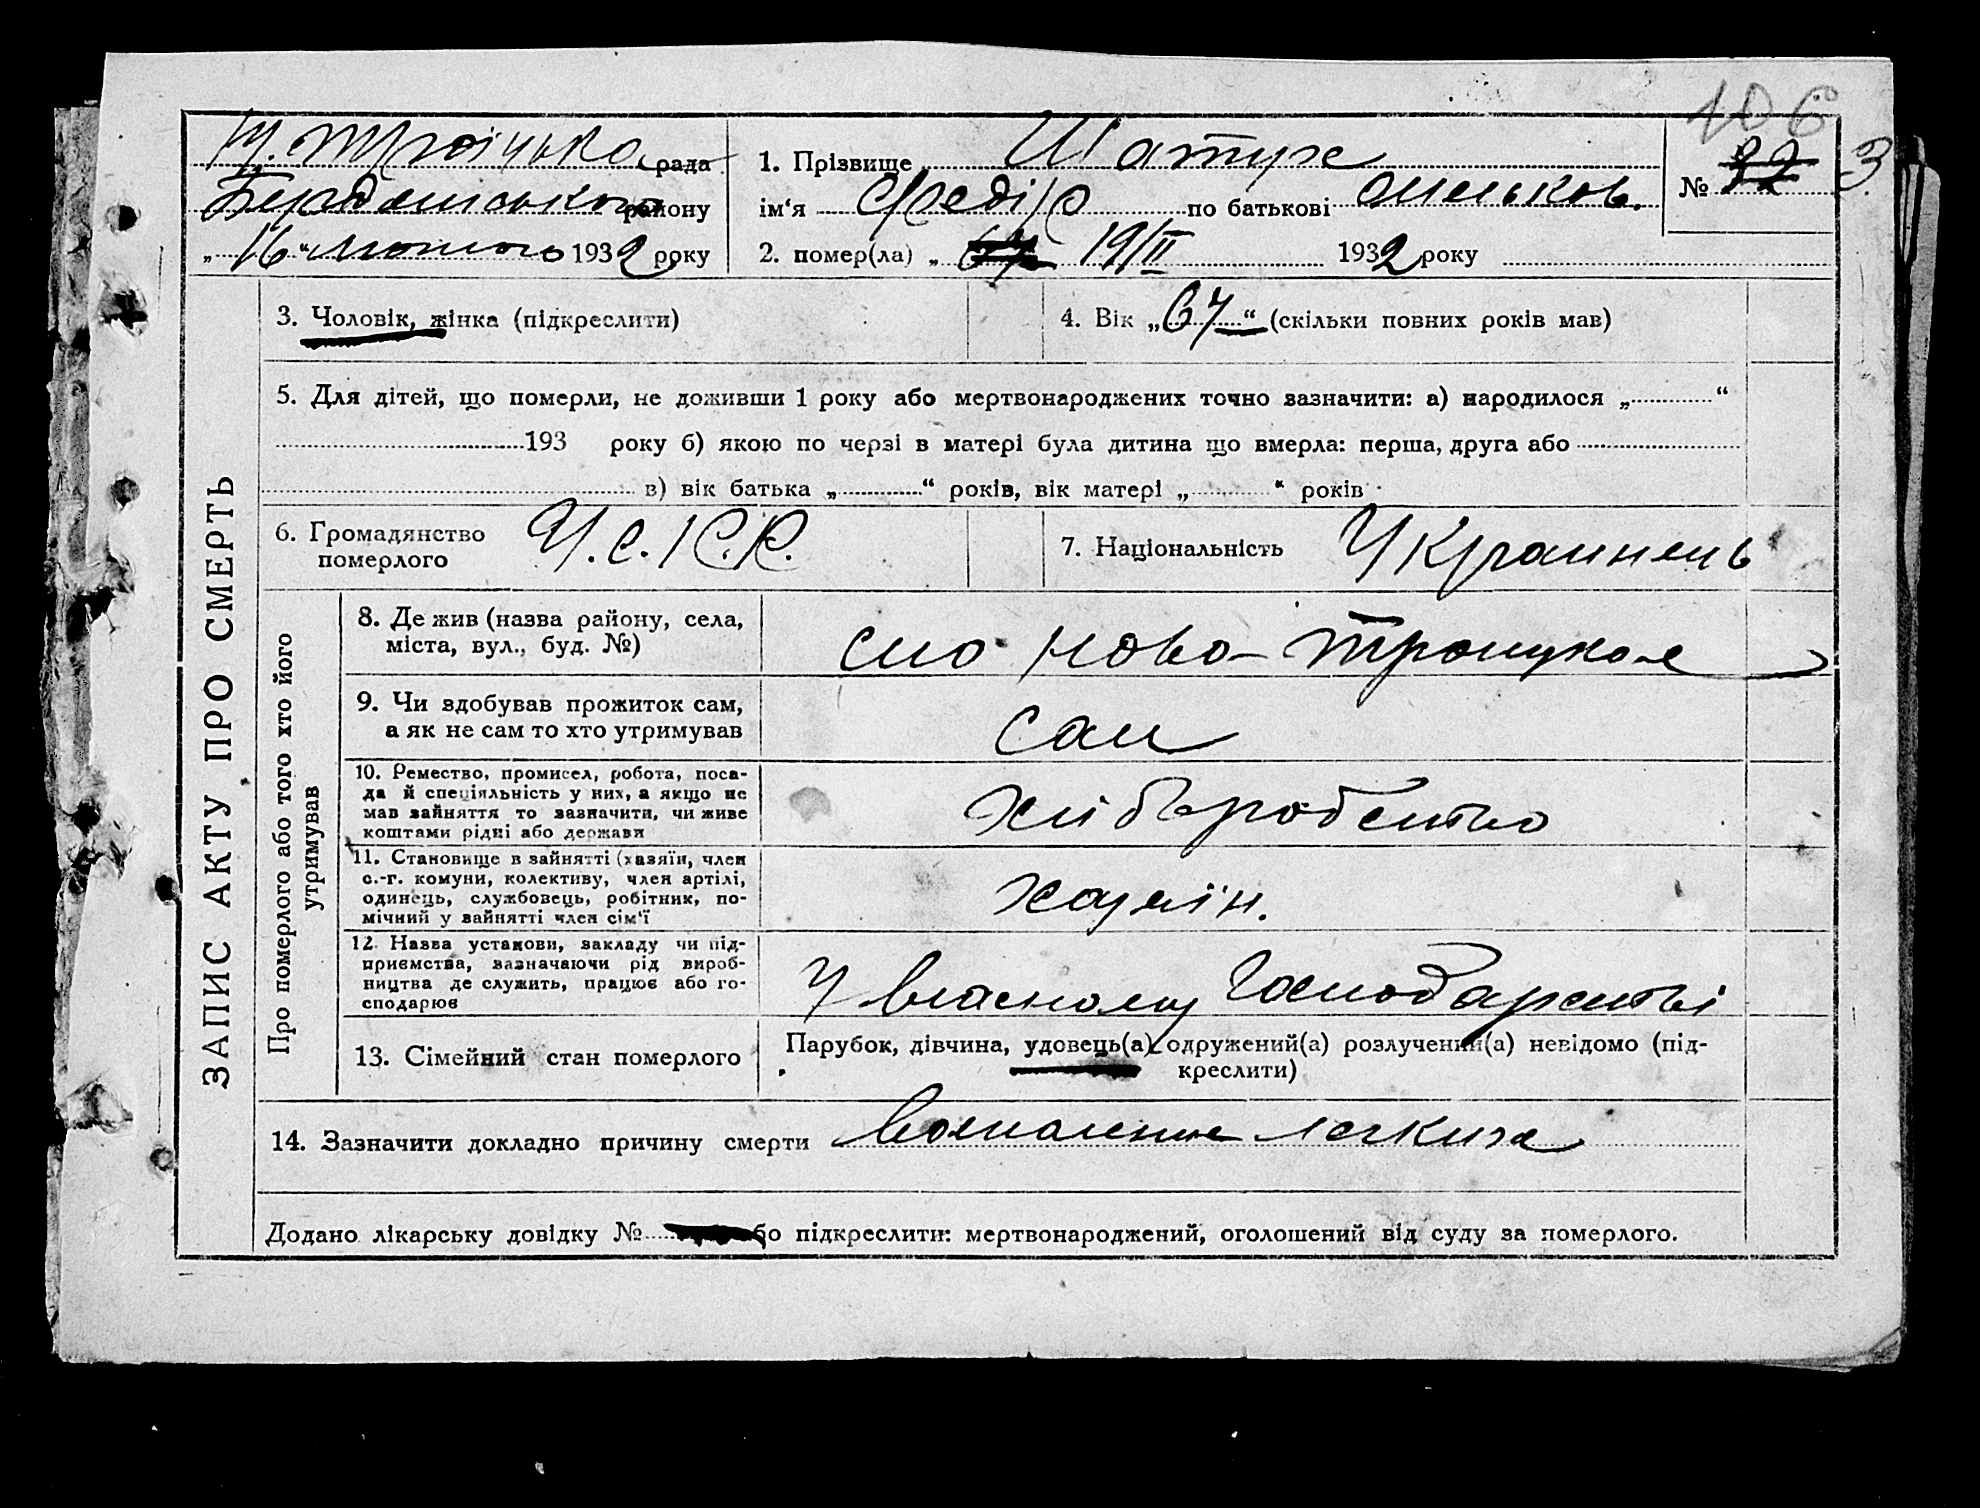 106
Н. Троїцька рада
Бердянського району
„16“ лютого 1932 року
1. Прізвище Шатух
ім‘я Федір по батькові Омельков.
2. помер(ла) „ 67 19/II 1932 року
№ 3
3. Чоловік, жінка (підкреслити)
4. Вік „67“ (скільки повних років мав)
5. Для дітей, що померли, не доживши 1 року або мертвонароджених точно зазначити: а) народилося „ “
193 року б) якою по черзі в матері була дитина що вмерла: перша, друга або
в) вік батька „ “ років, вік матері „ “ років
6. Громадянство
померлого
У.С.Р.Р.
7. Національність Украинець
ЗАПИС АКТУ ПРО СМЕРТЬ
Про померлого або того хто його
утримував
8. Де жив (назва району, села,
міста, вул., буд. №)
село Ново-Троицкое
9. Чи здобував прожиток сам,
а як не сам то хто утримував
сам
10. Ремество, промисел, робота, поса-
да й спеціяльність у них, а якщо не
мав зайняття то зазначити, чи живе
коштами рідні або держави
хлібробство
11. Становище в зайнятті (хазяїн, член
с.-г. комуни, колективу, член артілі,
одинець, службовець, робітник, по-
мічний у зайнятті член сім‘ї
хазяїн.
12. Назва установи, закладу чи під-
приємства, зазначаючи рід вироб-
ництва де служить, працює або го-
сподарює
У власному господарстві
13. Сімейний стан померлого
Парубок, дівчина, удовець(а), одружений(а) розлучений(а) невідомо (під-
креслити)
14. Зазначити докладно причину смерти воспаление легких
Додано лікарську довідку № або підкреслити: мертвонароджений, оголошений від суду за померлого.